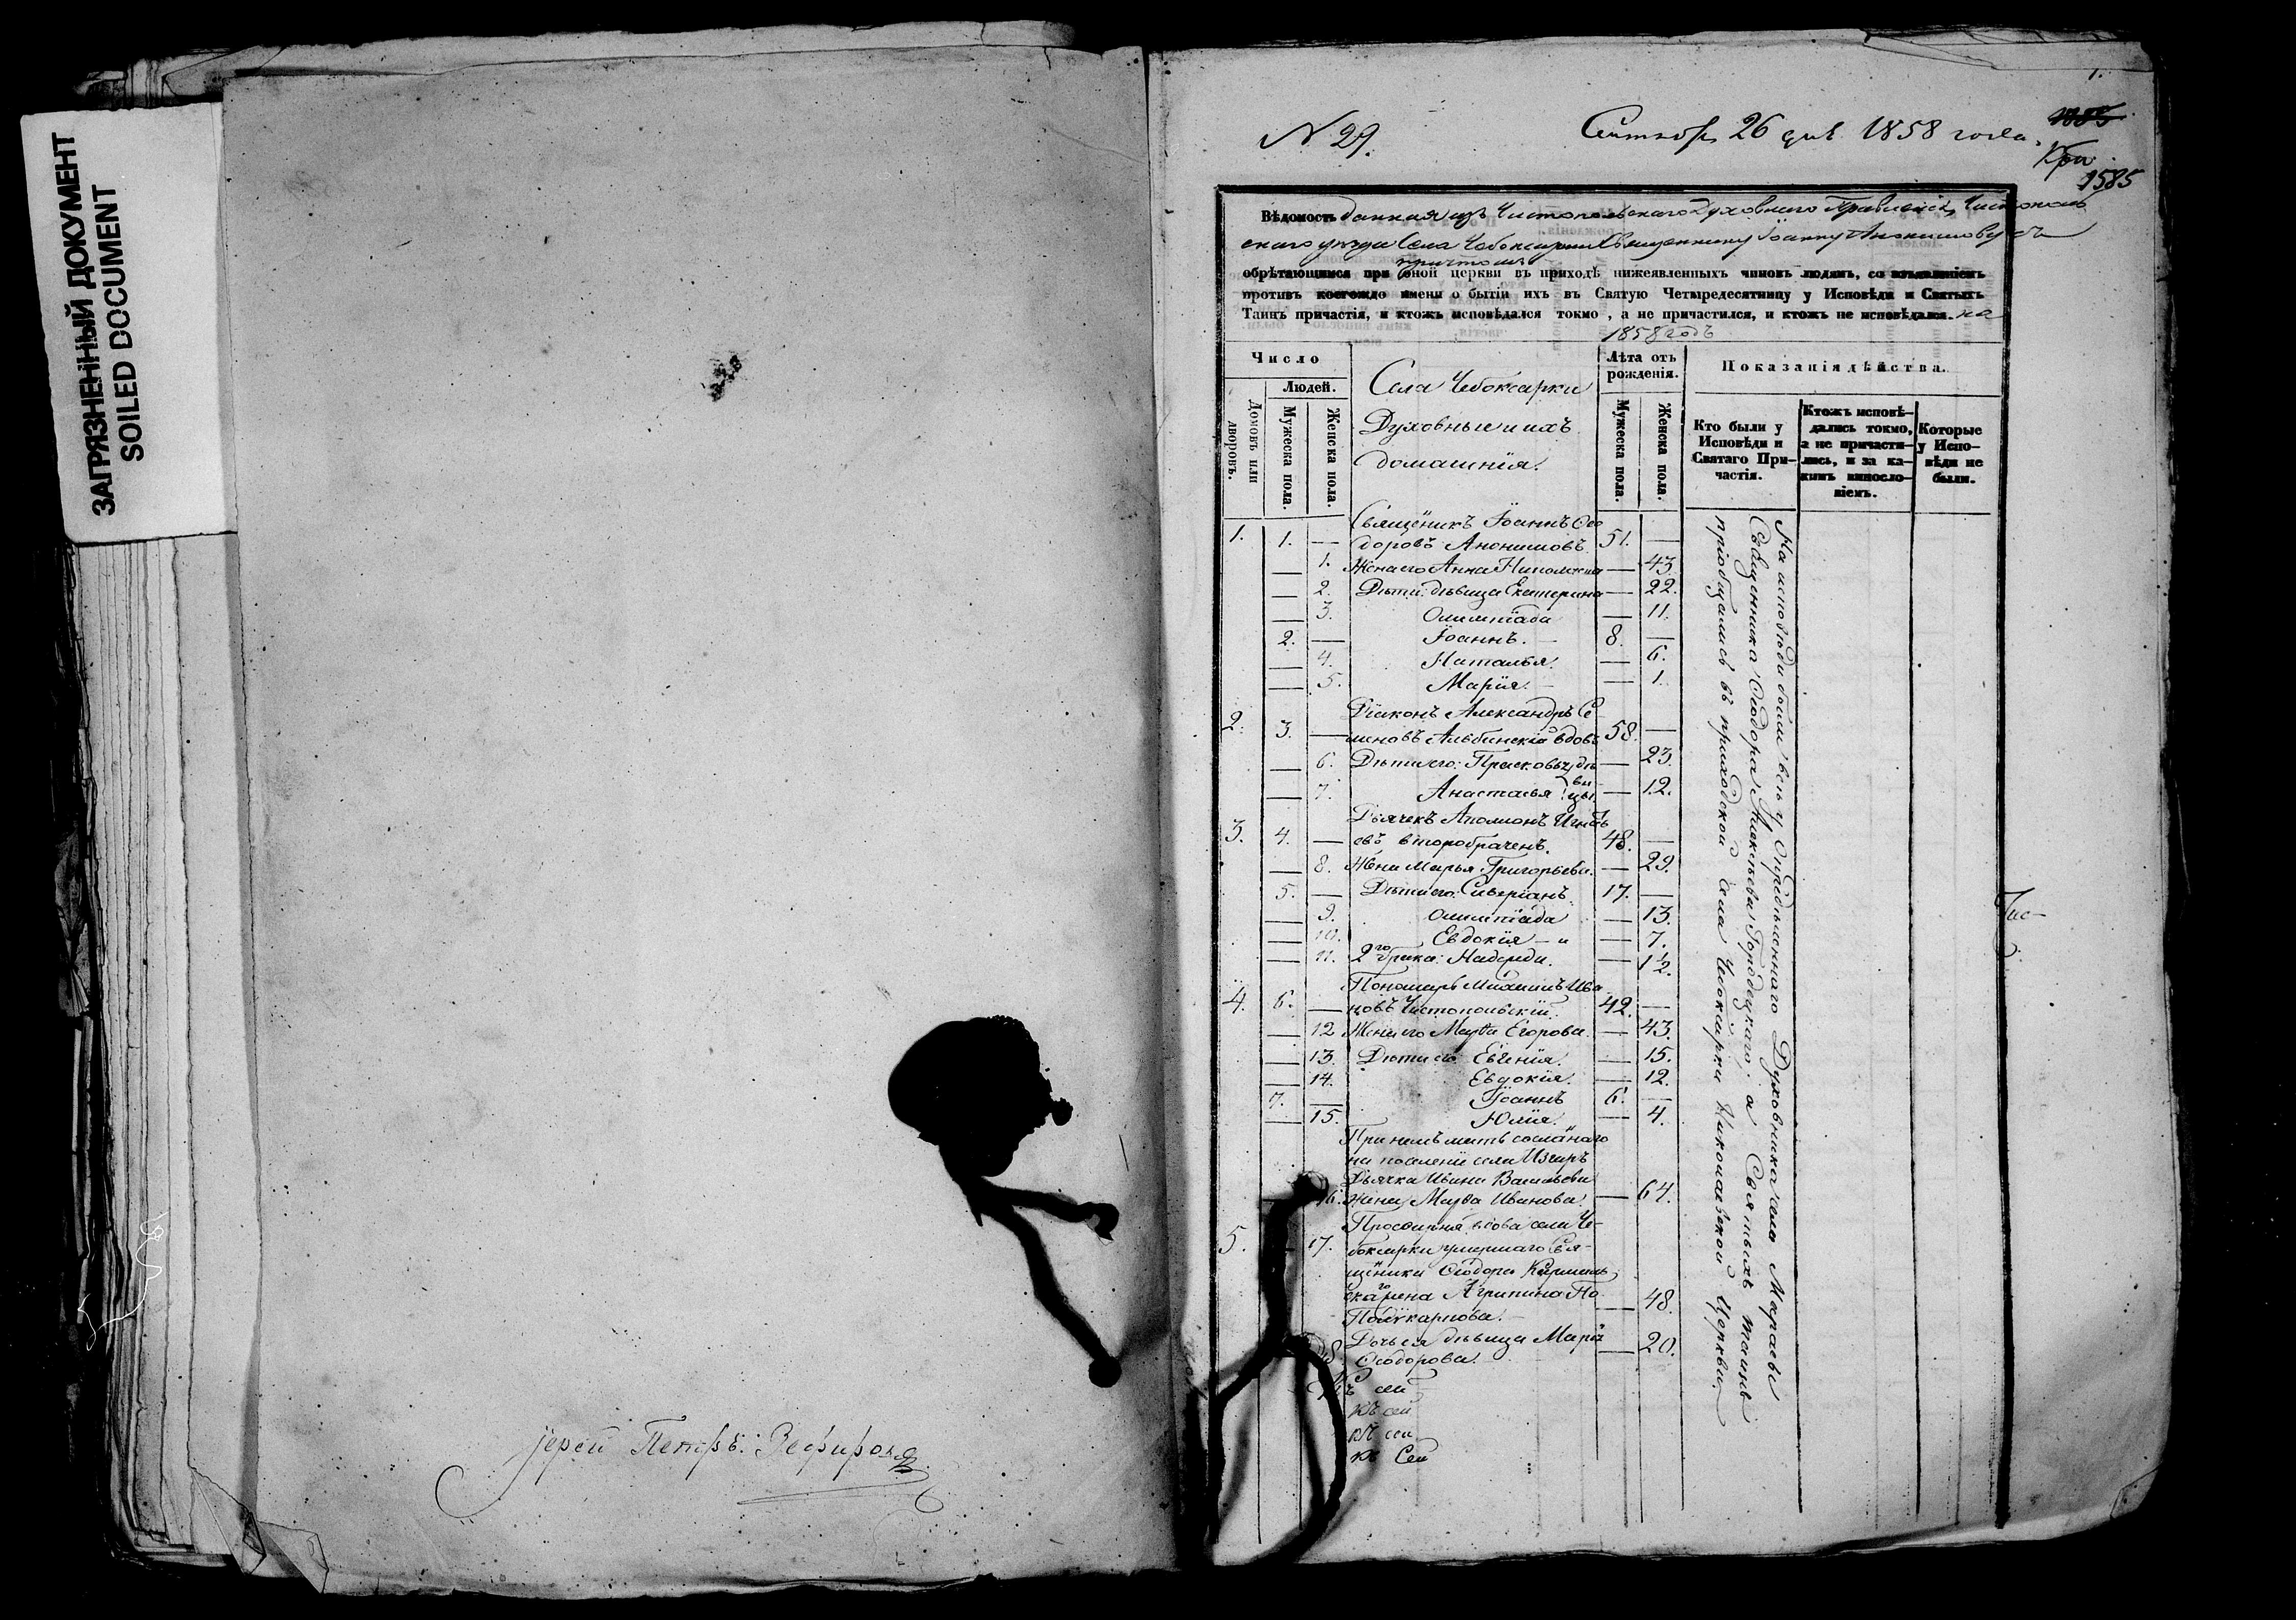 ЗАГРЯЗНЕННЫЙ ДОКУМЕНТ
SOILED DOCUMENT
Іерей Петръ Зефировъ
1.
N 29.
Сентябр. 26 дня 1858 года.
1585
Вѣдомость данная изъ Чистопольскаго Духовнаго Правленія, Чистополь
скаго уѣзда Села Чебоксарки Священнику Іоанну Анонимову съ
причтомъ
обрѣтающимся при оной церкви въ приходѣ нижеявленныхъ чиновъ людямъ, со изъявленіемъ
противъ коегождо имени о бытіи ихъ въ Святую Четыредесятницу у Исповѣди и Святыхъ
Таинъ причастія, и ктожъ исповѣдался токмо, а не причастился, и ктожъ не исповѣдался. на
1858 годъ
Число
Людей.
Домовъ или дворовъ.
Мужеска пола.
Женска пола.
Села Чебоксарки
Духовные и ихъ
домашнія.
Лѣта отъ рожденія.
Мужеска пола.
Женска пола.
Показанія дѣйства.
Кто были у Исповѣди и Святаго При-
частія.
Ктожъ исповѣ-
дались токмо,
а не причасти-
лись, и за ка-
кимъ винословіемъ.
Которые
у Испо-
вѣди не
были.
Священикъ Іоаннъ Ѳео
1. 1. — доровъ Анонимовъ 51. —
— 1. Жена его Анна — 43.
— 2. Дѣти: дѣвица Екатерина — 22.
— 3. Олимпіада — 11.
2. — Іоаннъ. 8. —
— 4. Наталья. — 6.
— 5. Марія. — 1.
Діаконъ Александръ Се
2. 3. — меновъ Альбинскій вдовъ 58. —
— 6. Дѣти его: Прасковья дѣ — 23.
— 7. Анастасья вицы — 12.
Дьячекъ Аполлонъ Игнать
3. 4. — евъ второбраченъ. 48. —
— 8. Жена Марья Григорьева. — 29.
5. — Дѣти его: Северіанъ 17. —
— 9. Олимпіада — 13.
— 10. Евдокія — и — 7.
— 11. 2го брака: Надежда. — 1/2.
Пономарь Михаилъ Ива
4. 6. — новъ Чистопольскій. 42. —
— 12 Жена его Марѳа Егорова. — 43.
— 13. Дѣти его: Евгенія. — 15.
— 14. Евдокія. — 12.
7. — Іоаннъ 6. —
— 15. Юлія. — 4.
При немъ мать сосланаго
на поселеніе села
Дьячка Ивана Васильева
16. жена Марѳа Иванова. — 64.
Просфирня вдова села Че-
5. — 17. боксарки умершаго Свя-
щеника Ѳеодора
жена Агрипина По
Поликарпова. — 48.
Дочь ея дѣвица Марія — 20.
18. Ѳеодорова.
Къ сей
къ сей
къ сей
къ Сей
На исповѣди были всѣ у опредѣленнаго Духовника села
Священника Ѳеодора Алексѣева Городецкаго; а Святыхъ таинъ
пріобщались въ приходской села Чебоксарки Николаевской Церкви